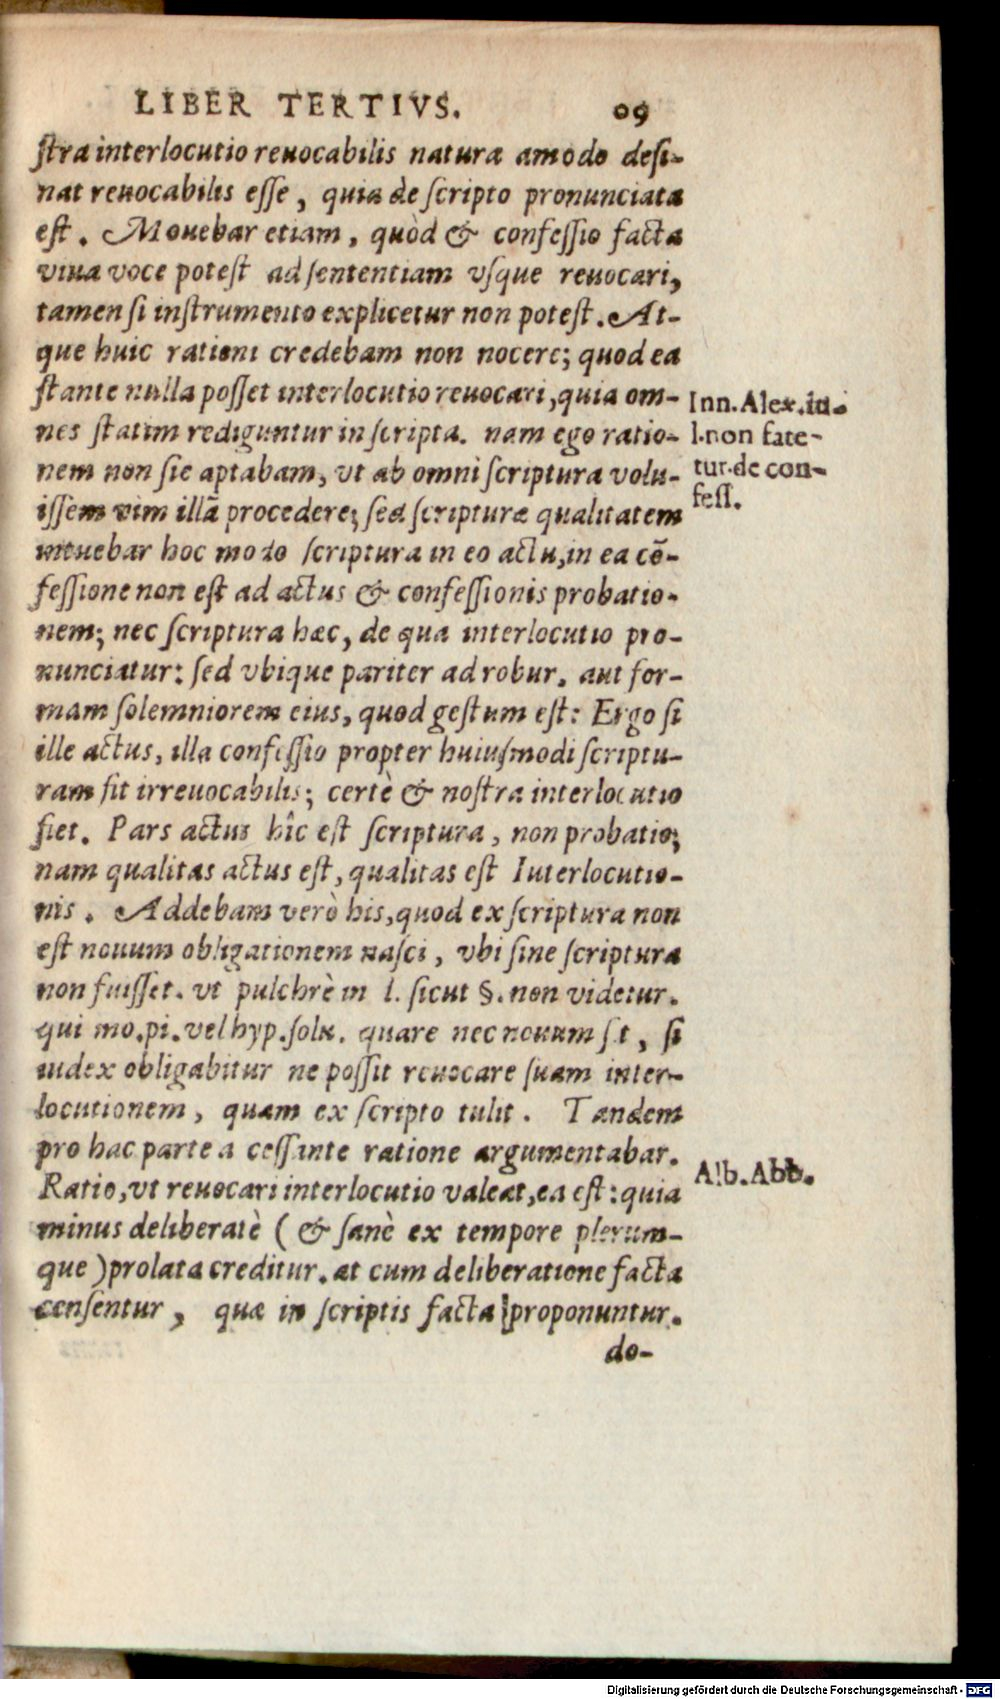 LIBER TERTIVS. 09
stra interlocutio reuocabilis natura amodo desi-
nat reuocabilis esse, quia de scripto pronunciata
est. Mouebar etiam, quòd & confessio facta
viua voce potest ad sententiam vsque reuocari,
tamen si instrumento explicetur non potest. At-
que huic rationi credebam non nocere; quod ea
stante nulla posset interlocutio reuocari, quia om-
nes statim rediguntur in scripta. nam ego ratio-
nem non sic aptabam, vt ab omni scriptura volu-
issem vim illā procedere; sed scripturæ qualitatem
intuebar hoc modo scriptura in eo actu, in ea cō-
fessione non est ad actus & confessionis probatio-
nem; nec scriptura hæc, de qua interlocutio pro-
nunciatur: sed vbique pariter ad robur. aut for-
mam solemniorem eius, quod gestum est: Ergo si
ille actus, illa confessio propter huiusmodi scriptu-
ram sit irreuocabilis; certè & nostra interlocutio
fiet. Pars actus hîc est scriptura, non probatio;
nam qualitas actus est, qualitas est Interlocutio-
nis. Addebam verò his, quod ex scriptura non
est nouum obligationem nasci, vbi sine scriptura
non fuisset. vt pulchrè in l. sicut §. non videtur.
qui mo. pi. vel hyp. solu. quare nec nouum sit, si
iudex obligabitur ne possit reuocare suam inter-
locutionem, quam ex scripto tulit. Tandem
pro hac parte a cessante ratione argumentabar.
Ratio, vt reuocari interlocutio valeat, ea est: quia
minus deliberatè (& sanè ex tempore plerum-
que) prolata creditur. at cum deliberatione facta
censentur, quæ in scriptis facta proponuntur.
do-
Inn. Alex. in
l. non fate-
tur. de con-
fess.
Alb. Abb.
Digitalisierung gefördert durch die Deutsche Forschungsgemeinschaft - DFG